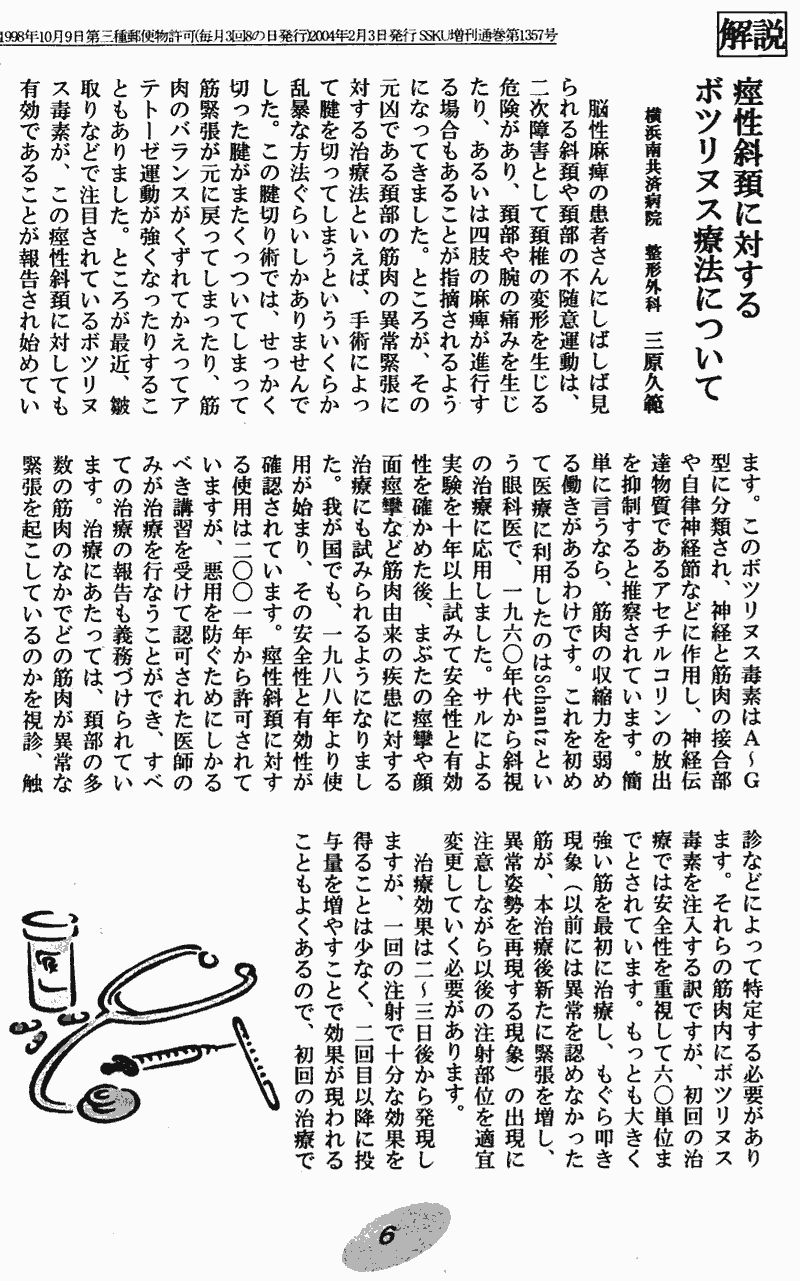 1998年10月9日第三種郵便物許可(毎月3回8の日発行)2004年2月3日発行 SSKU増刊通巻第1357号
解説
痙性斜頚に対する
ボツリヌス療法について
横浜南共済病院　整形外科　三原久範
脳性麻痺の患者さんにしばしば見
られる斜頚や頚部の不随意運動は、
二次障害として頚椎の変形を生じる
危険があり、頚部や腕の痛みを生じ
たり、あるいは四肢の麻痺が進行す
る場合もあることが指摘されるよう
になってきました。ところが、その
元凶である頚部の筋肉の異常緊張に
対する治療法といえば、手術によっ
て腱を切ってしまうといういくらか
乱暴な方法ぐらいしかありませんで
した。この腱切り術では、せっかく
切った腱がまたくっついてしまって
筋緊張が元に戻ってしまったり、筋
肉のバランスがくずれてかえってア
テトーゼ運動が強くなったりするこ
ともありました。ところが最近、皺
取りなどで注目されているボツリヌ
ス毒素が、この痙性斜頚に対しても
有効であることが報告され始めてい
ます。このボツリヌス毒素はA～G
型に分類され、神経と筋肉の接合部
や自律神経節などに作用し、神経伝
達物質であるアセチルコリンの放出
を抑制すると推察されています。簡
単に言うなら、筋肉の収縮力を弱め
る働きがあるわけです。これを初め
て医療に利用したのはSchantzとい
う眼科医で、一九六〇年代から斜視
の治療に応用しました。サルによる
実験を十年以上試みて安全性と有効
性を確かめた後、まぶたの痙攣や顔
面痙攣など筋肉由来の疾患に対する
治療にも試みられるようになりまし
た。我が国でも、一九八八年より使
用が始まり、その安全性と有効性が
確認されています。痙性斜頚に対す
る使用は二〇〇一年から許可されて
いますが、悪用を防ぐためにしかる
べき講習を受けて認可された医師の
みが治療を行なうことができ、すべ
ての治療の報告も義務づけられてい
ます。治療にあたっては、頚部の多
数の筋肉のなかでどの筋肉が異常な
緊張を起こしているのかを視診、触
診などによって特定する必要があり
ます。それらの筋肉内にボツリヌス
毒素を注入する訳ですが、初回の治
療では安全性を重視して六〇単位ま
でとされています。もっとも大きく
強い筋を最初に治療し、もぐら叩き
現象（以前には異常を認めなかった
筋が、本治療後新たに緊張を増し、
異常姿勢を再現する現象）の出現に
注意しながら以後の注射部位を適宜
変更していく必要があります。
治療効果は二～三日後から発現し
ますが、一回の注射で十分な効果を
得ることは少なく、二回目以降に投
与量を増やすことで効果が現われる
こともよくあるので、初回の治療で
6